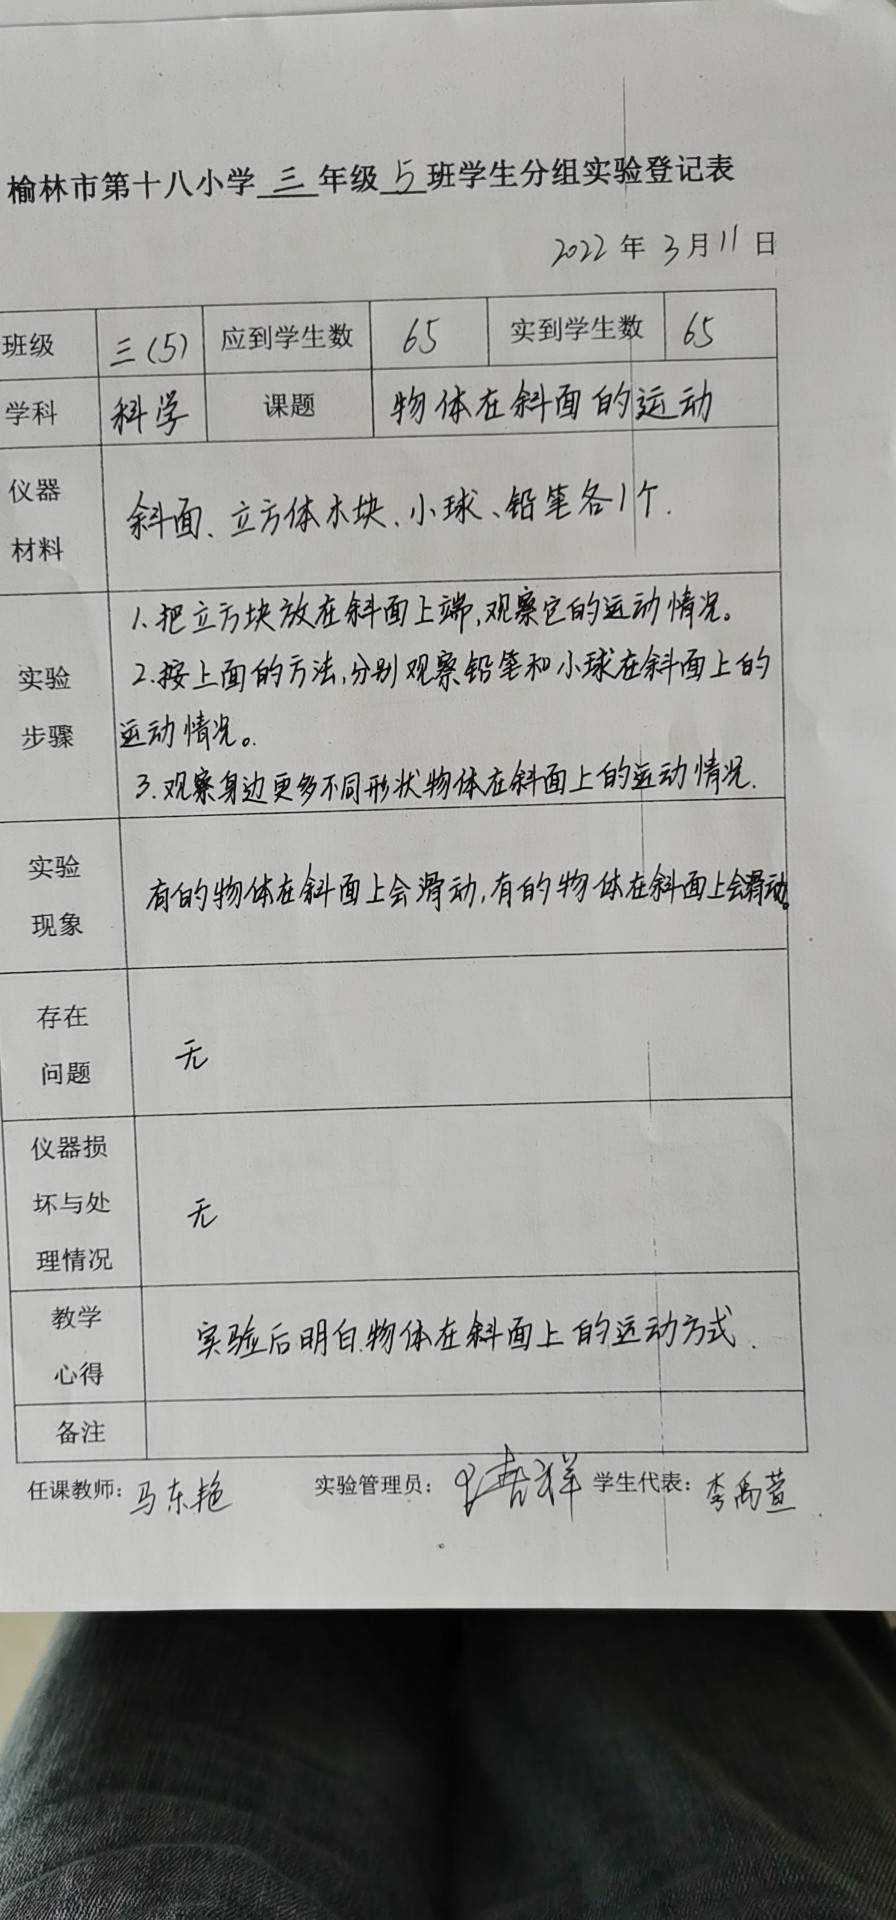 榆林市第十八小学 三 年级 5 班学生分组实验登记表
2022 年 3 月 11 日
班级 三(5) 应到学生数 65 实到学生数 65
学科 科学 课题 物体在斜面的运动
仪器
材料
斜面、立方体木块、小球、铅笔各1个.
实验
步骤
1.把立方块放在斜面上端,观察它的运动情况。
2.按上面的方法,分别观察铅笔和小球在斜面上的
运动情况。
3.观察身边更多不同形状物体在斜面上的运动情况.
实验
现象
有的物体在斜面上会滑动,有的物体在斜面上会滑动。
存在
问题
无
仪器损
坏与处
理情况
无
教学
心得
实验后明白物体在斜面上的运动方式.
备注
任课教师: 马东艳 实验管理员: 学生代表: 李禹萱